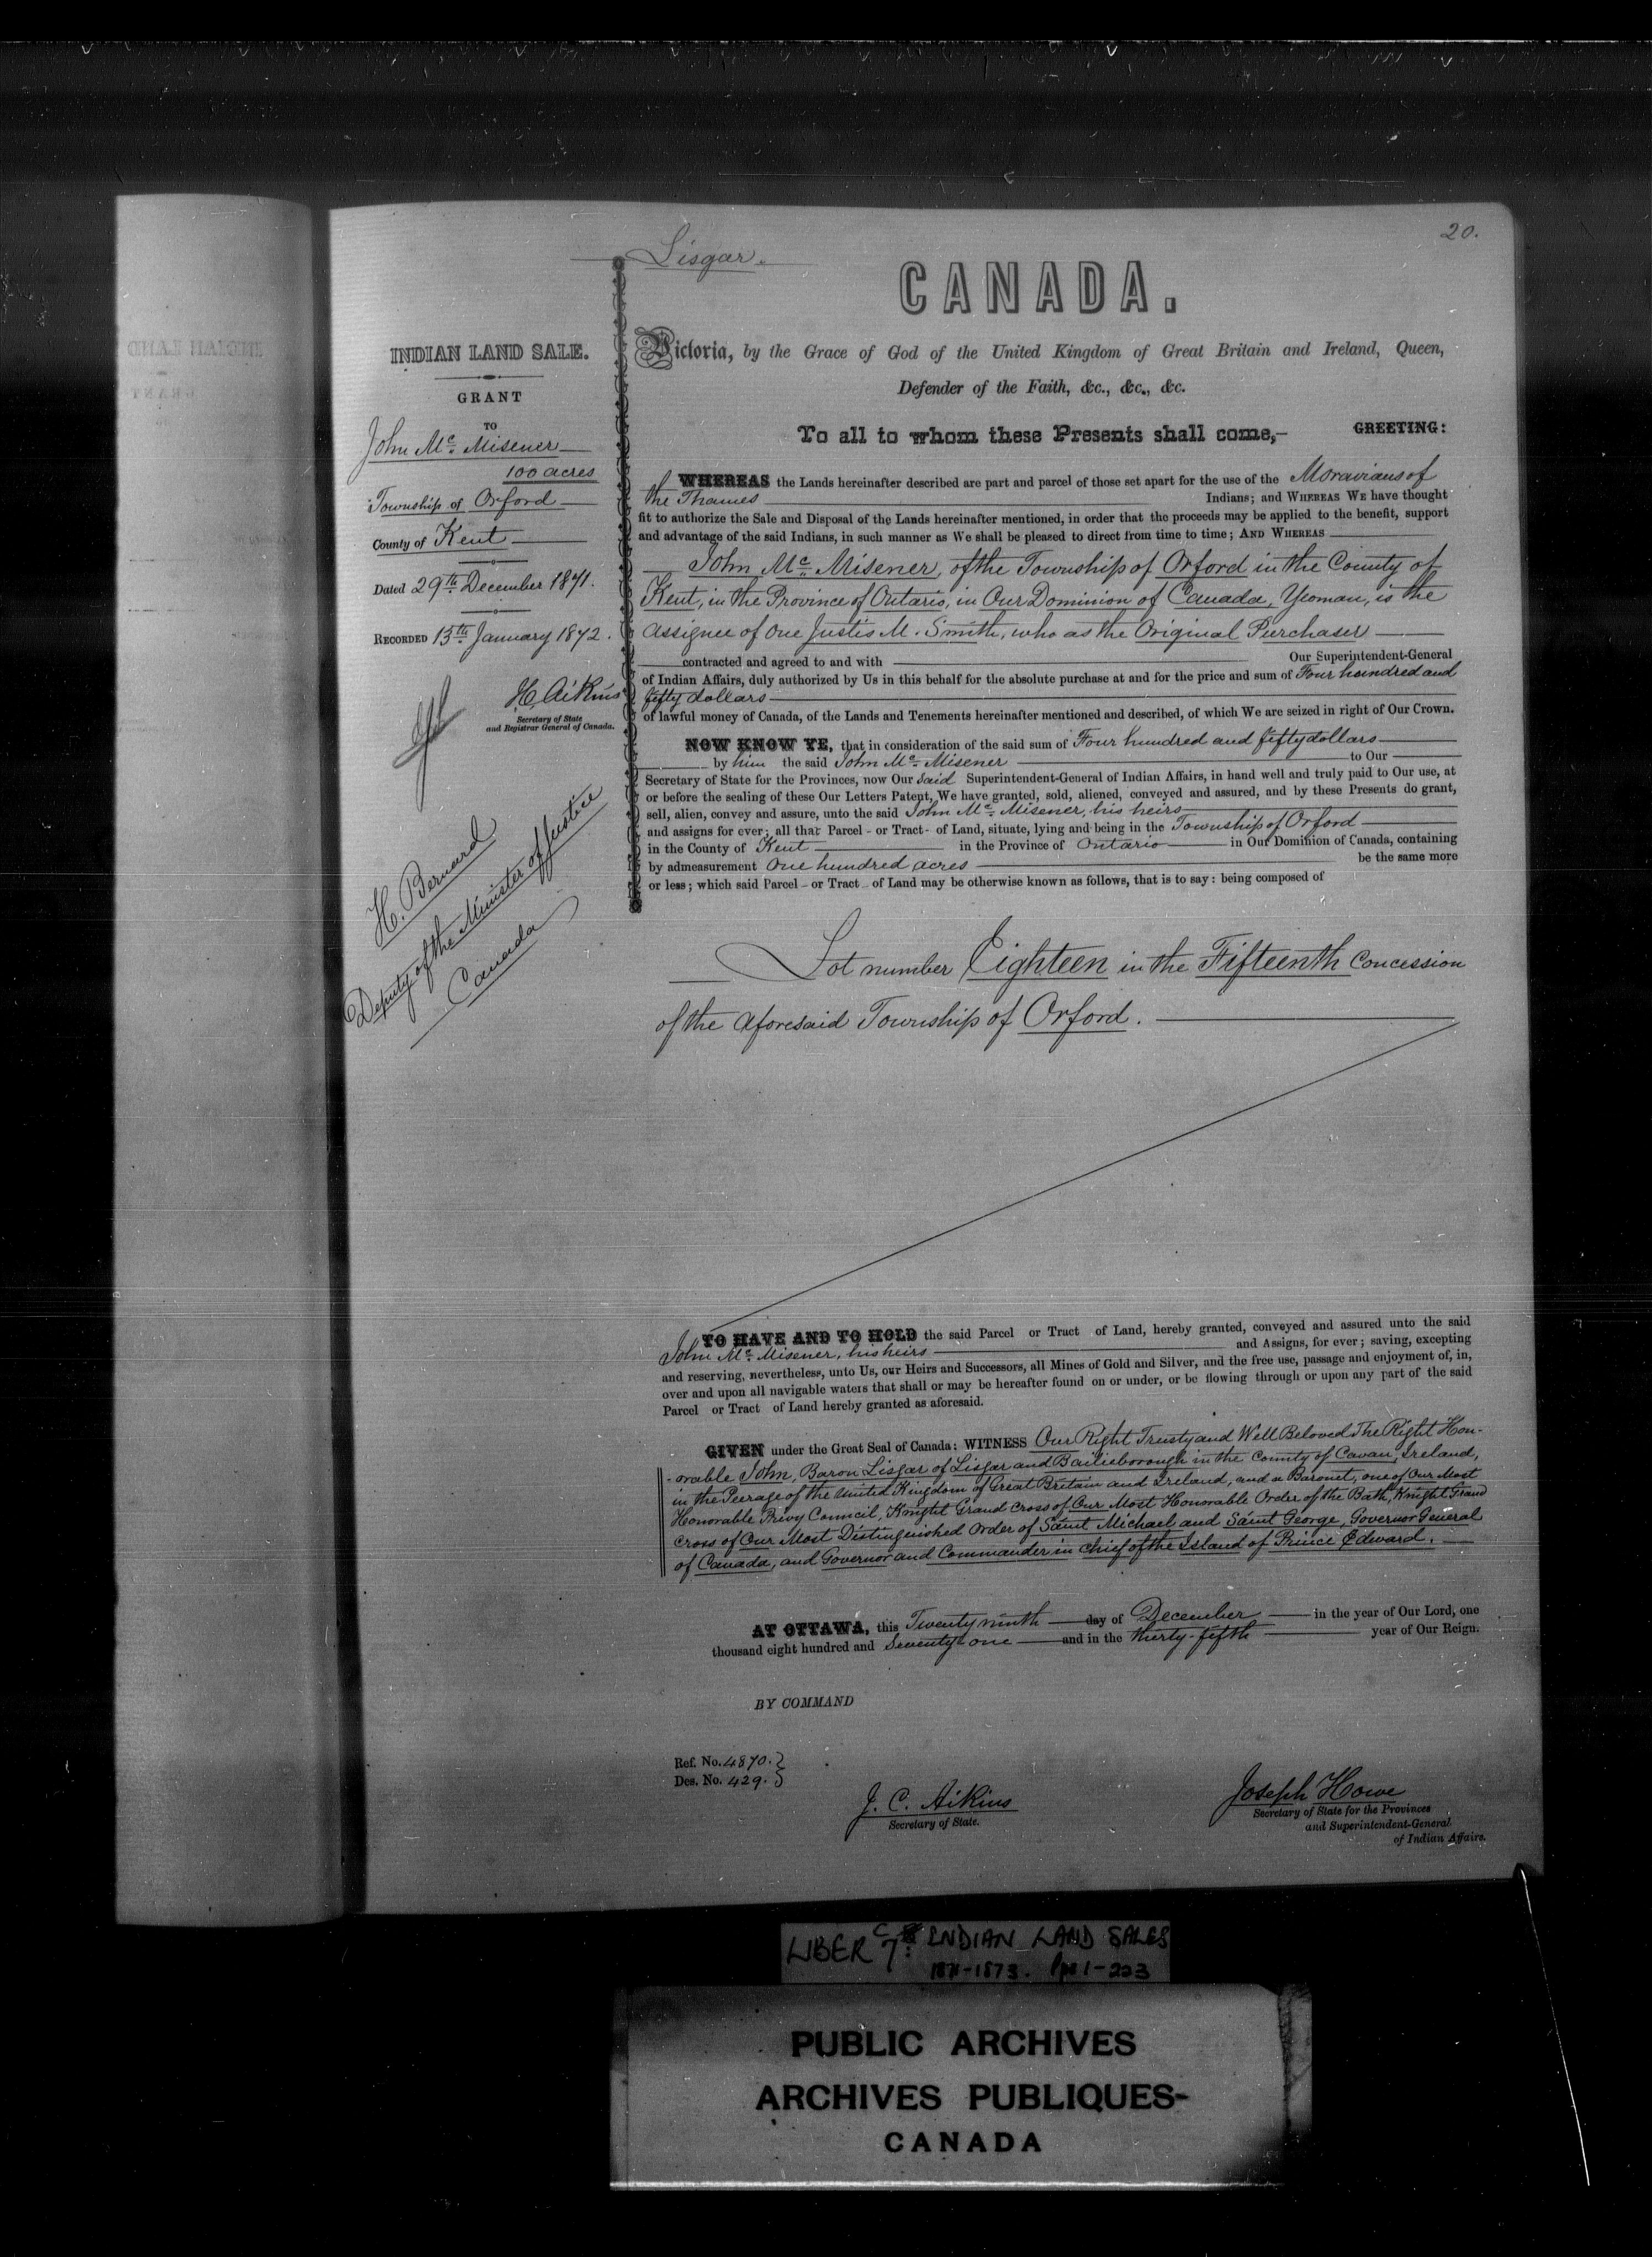 20.
Lisgar.
CANADA.
INDIAN LAND SALE.
GRANT
TO
John Mc. Misener
100 acres
Township of Orford
County of Kent
Dated 29th December 1871.
RECORDED 13th January 1872.
Aikins
Secretary of State
and Registrar General of Canada.
H. Bernard
Deputy of the Minister of Justice
Canada
Victoria, by the Grace of God of the United Kingdom of Great Britain and Ireland, Queen,
Defender of the Faith, &c., &c., &c.
To all to whom these Presents shall come,- GREETING:
WHEREAS the Lands hereinafter described are part and parcel of those set apart for the use of the Moravians of
the Thames Indians; and WHEREAS WE have thought
fit to authorize the Sale and Disposal of the Lands hereinafter mentioned, in order that the proceeds may be applied to the benefit, support
and advantage of the said Indians, in such manner as We shall be pleased to direct from time to time; AND WHEREAS
John Mc. Misener, of the Township of Orford in the County of
Kent, in the Province of Ontario, in Our Dominion of Canada, Yeoman, is the
assignee of one Justis M. Smith, who as the Original Purchaser
contracted and agreed to and with Our Superintendent-General
of Indian Affairs, duly authorized by Us in this behalf for the absolute purchase at and for the price and sum of Four hundred and
fifty dollars
of lawful money of Canada, of the Lands and Tenements hereinafter mentioned and described, of which We are seized in right of Our Crown.
NOW KNOW YE, that in consideration of the said sum of Four hundred and fifty dollars
by him the said John Mc. Misener to Our
Secretary of State for the Provinces, now Our said Superintendent-General of Indian Affairs, in hand well and truly paid to Our use, at
or before the sealing of these Our Letters Patent, We have granted, sold, aliened, conveyed and assured, and by these Presents do grant,
sell, alien, convey and assure, unto the said John Mc. Misener, his heirs
and assigns for ever; all that Parcel - or Tract - of Land, situate, lying and being in the Township of Orford
in the County of Kent in the Province of Ontario in Our Dominion of Canada, containing
by admeasurement One hundred acres be the same more
or less; which said Parcel - or Tract - of Land may be otherwise known as follows, that is to say: being composed of
Lot number Eighteen in the Fifteenth Concession
of the aforesaid Township of Orford.
TO HAVE AND TO HOLD the said Parcel or Tract of Land, hereby granted, conveyed and assured unto the said
John Mc. Misener, his heirs and Assigns, for ever; saving, excepting
and reserving, nevertheless, unto Us, our Heirs and Successors, all Mines of Gold and Silver, and the free use, passage and enjoyment of, in,
over and upon all navigable waters that shall or may be hereafter found on or under, or be flowing through or upon any part of the said
Parcel or Tract of Land hereby granted as aforesaid.
GIVEN under the Great Seal of Canada: WITNESS Our Right Trusty and Well Beloved The Right Hon-
-orable John, Baron Lisgar of Lisgar and Bailieborough in the County of Cavan, Ireland,
in the Peerage of the United Kingdom of Great Britain and Ireland, and a Baronet, one of Our Most
Honorable Privy Council, Knight Grand Cross of Our Most Honorable Order of the Bath, Knight Grand
Cross of Our Most Distinguished Order of Saint Michael and Saint George, Governor General
of Canada, and Governor and Commander in chief of the Island of Prince Edward.
AT OTTAWA, this Twenty ninth day of December in the year of Our Lord, one
thousand eight hundred and Seventy-one and in the thirty-fifth year of Our Reign.
BY COMMAND
Ref. No. 4870.
Des. No. 429.
J. C. Aikins
Secretary of State.
Joseph Howe
Secretary of State for the Provinces
and Superintendent-General
of Indian Affairs.
LIBER C 7 INDIAN LAND SALES
1871-1873. Pps 1-223
PUBLIC ARCHIVES
ARCHIVES PUBLIQUES-
CANADA